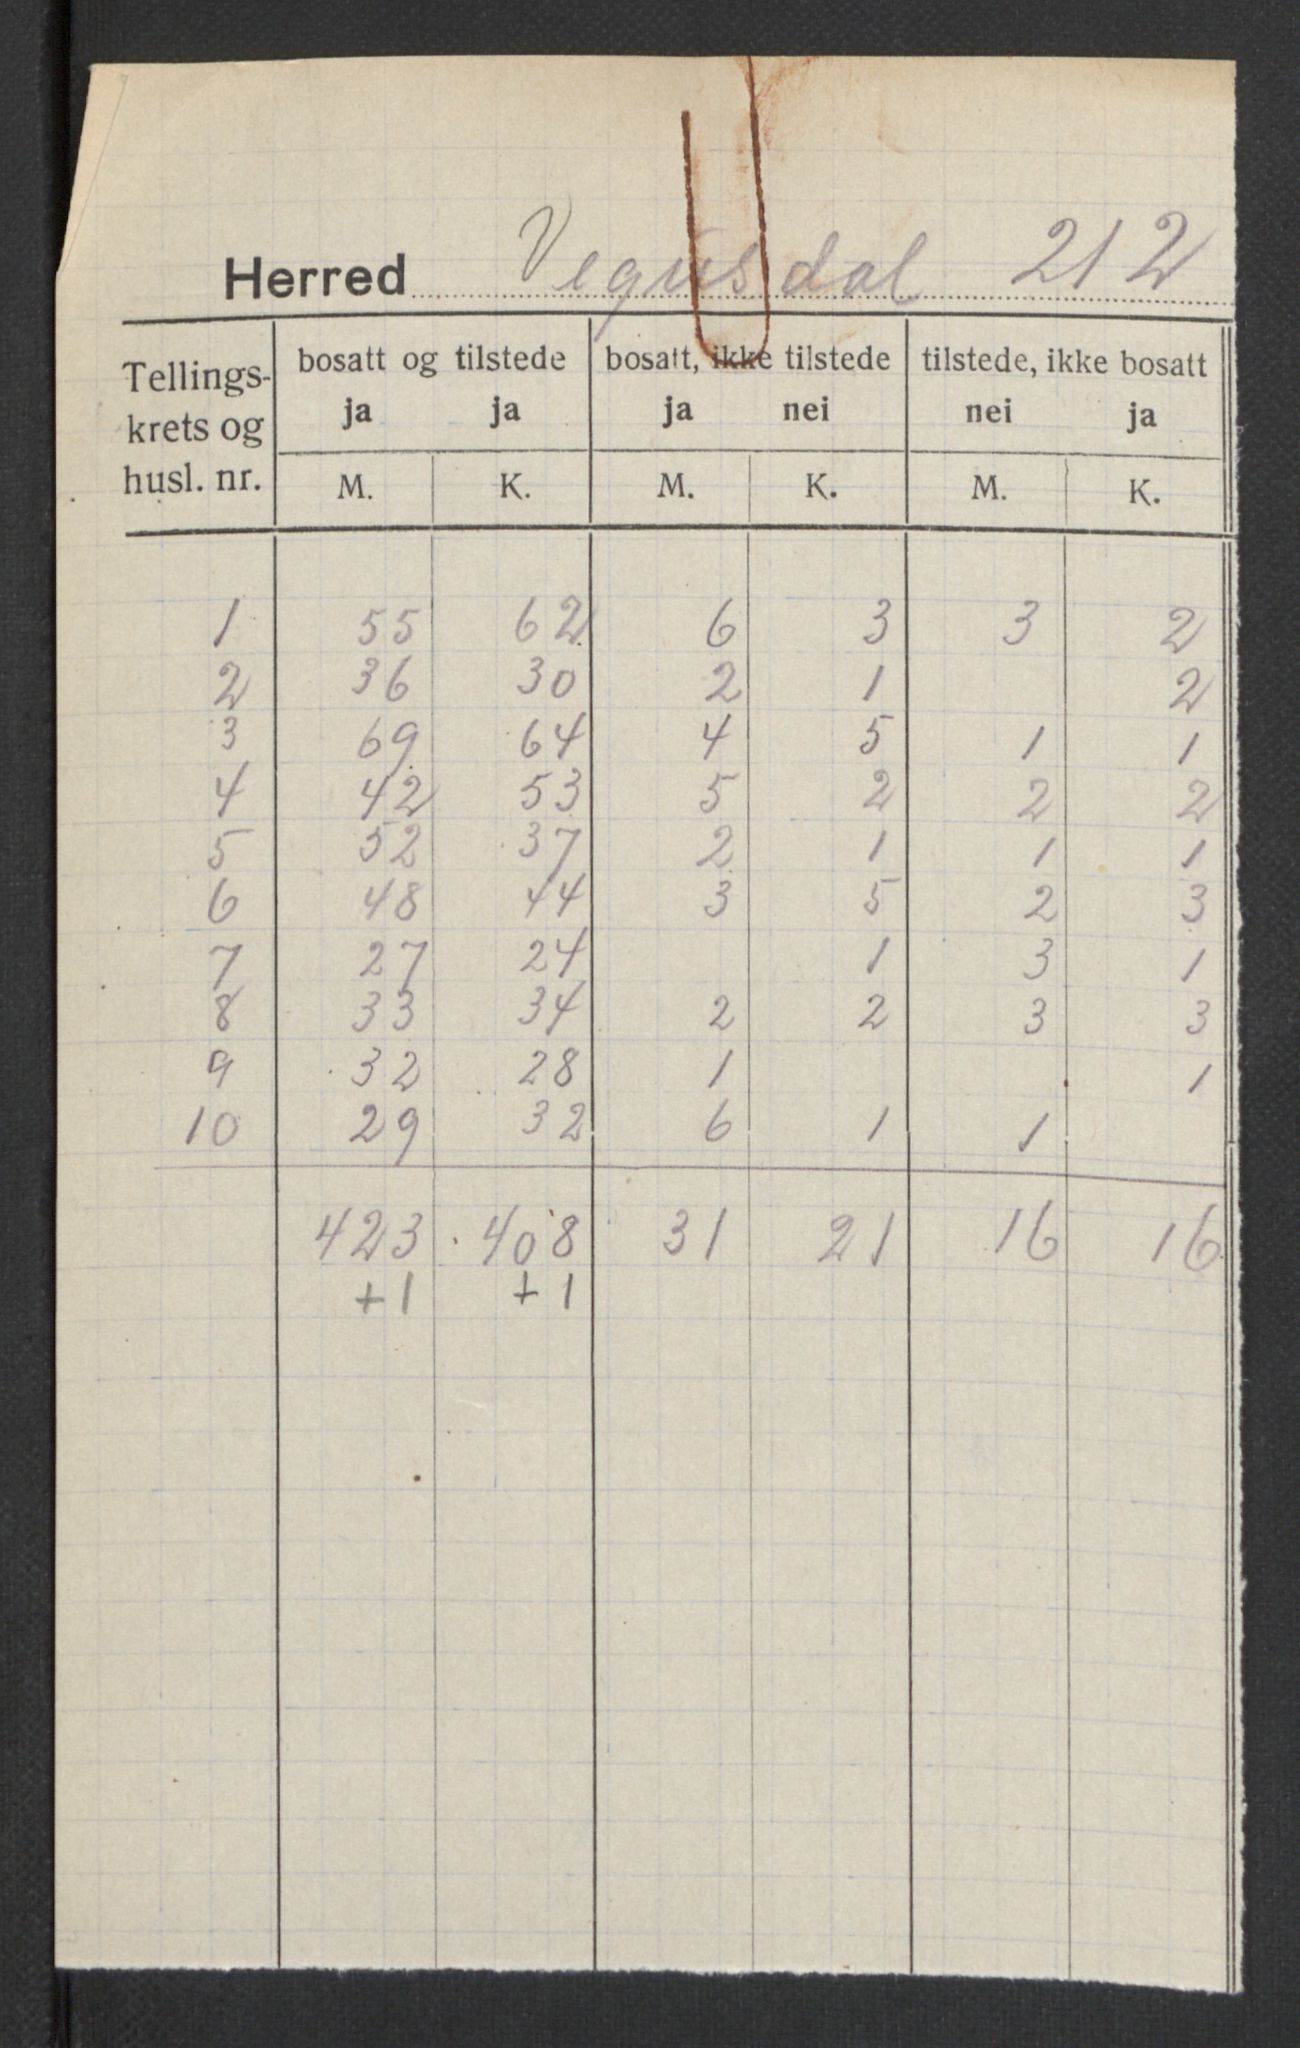 Herred Vegusdal 212
Tellings- bosatt og tilstede bosatt, ikke tilstede tilstede, ikke bosatt
krets og ja ja ja nei nei ja
husl. nr. M. K. M. K. M. K.
1 55 62 6 3 3 2
2 36 30 2 1 2
3 69 64 4 5 1 1
4 42 53 5 2 2 2
5 52 37 2 1 1 1
6 48 44 3 5 2 3
7 27 24 1 3 1
8 33 34 2 2 3 3
9 32 28 1 1
10 29 32 6 1 1
423 408 31 21 16 16
+1 +1